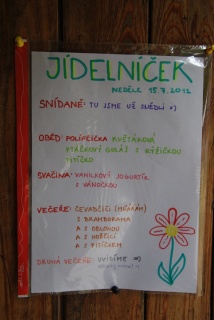 JÍDELNÍČEK
NEDĚLE 15.7.2012
SNÍDANĚ: TU JSME UŽ SNĚDLI =)
OBĚD: POLIFČIČKA KVĚTÁKOVÁ
PTÁČKOVÝ GULÁŠ S RÝŽIČKOU
PITÍČKO
SVAČINA: VANILKOVÝ JOGURTÍK
S VÁNOČKOU
VEČEŘE: ČEVABČIČI
S BRAMBORAMA
A S CIBULKOU
A S HOŘČICÍ
A S PITÍČKEM
DRUHÁ VEČEŘE: UVIDÍME =)